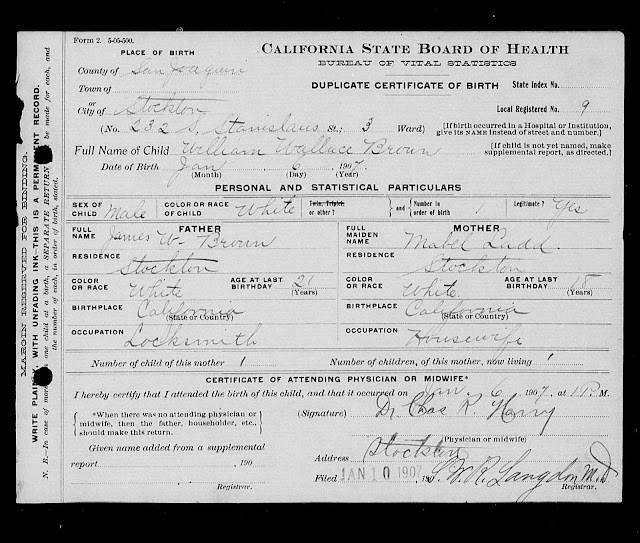 Form 2. 5-05-500.
CALIFORNIA STATE BOARD OF HEALTH
PLACE OF BIRTH
BUREAU OF VITAL STATISTICS
County of San Joaquin
DUPLICATE CERTIFICATE OF BIRTH State Index No.
Town of
or
City of Stockton
Local Registered No. 9
(No. 232 S. Stanislaus St.; 3 Ward) [If birth occurred in a Hospital or Institution, give its NAME instead of street and number.]
Full Name of Child William Wallace Brown [If child is not yet named, make supplemental report, as directed.]
Date of Birth Jan 6 1907.
(Month) (Day) (Year)
PERSONAL AND STATISTICAL PARTICULARS
SEX OF CHILD Male COLOR OR RACE OF CHILD White Twin, Triplet, or other? } and { Number in order of birth Legitimate? Yes
FATHER MOTHER
FULL NAME James W. Brown FULL MAIDEN NAME Mabel
RESIDENCE Stockton RESIDENCE Stockton
COLOR OR RACE White AGE AT LAST BIRTHDAY 21 (Years) COLOR OR RACE White. AGE AT LAST BIRTHDAY (Years)
BIRTHPLACE California (State or Country) BIRTHPLACE California (State or Country)
OCCUPATION Locksmith OCCUPATION Housewife
Number of child of this mother 1 Number of children, of this mother, now living 1
CERTIFICATE OF ATTENDING PHYSICIAN OR MIDWIFE*
I hereby certify that I attended the birth of this child, and that it occurred on Jan. 6, 1907, at 1 P. M.
{ *When there was no attending physician or midwife, then the father, householder, etc., should make this return. } (Signature) Dr Chas R. Harry
(Physician or midwife)
Given name added from a supplemental
Address Stockton
report 190
Filed JAN 10 1907 190 W. R. Langdon M.D
Registrar. Registrar.
MARGIN RESERVED FOR BINDING.
WRITE PLAINLY, WITH UNFADING INK—THIS IS A PERMANENT RECORD.
N. B.—In case of more than one child at a birth, a SEPARATE RETURN must be made for each, and the number of each, in order of birth, stated.